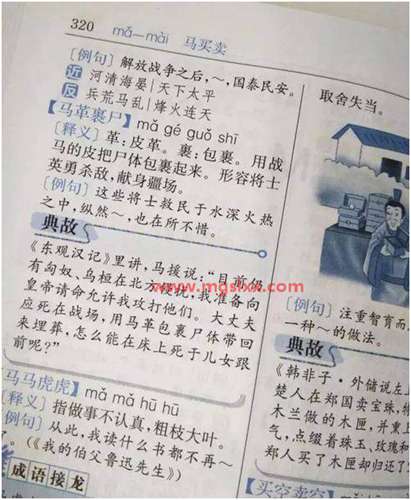 320 mǎ—mài 马买卖
[例句] 解放战争之后,~,国泰民安。
近 河清海晏|天下太平
反 兵荒马乱|烽火连天
【马革裹尸】 mǎ gé guǒ shī
[释义] 革:皮革。裹:包裹。用战
马的皮把尸体包裹起来。形容将士
英勇杀敌,献身疆场。
[例句] 这些将士救民于水深火热
之中,纵然~,也在所不惜。
典故
《东观汉记》里讲,马援说:“目前仍
有匈奴、乌桓在北方侵扰,我准备向
皇帝请命允许我攻打他们。大丈夫
应死在战场,用马革包裹尸体带回
来埋葬,怎么能在床上死于儿女跟
前呢?”
【马马虎虎】 mǎ mǎ hū hū
[释义] 指做事不认真,粗枝大叶。
[例句] 从此,我读什么书都不再~
。(《我的伯父鲁迅先生》)
成语接龙
取舍失当。
[例句] 注重智育而
一种~的做法。
典故
《韩非子·外储说左上
楚人在郑国卖宝珠,特
木兰做的木匣,并熏上
气,点缀着珠玉、玫瑰和
郑人买了木匣却归还了
【买空卖空】
www.mgslxx.com